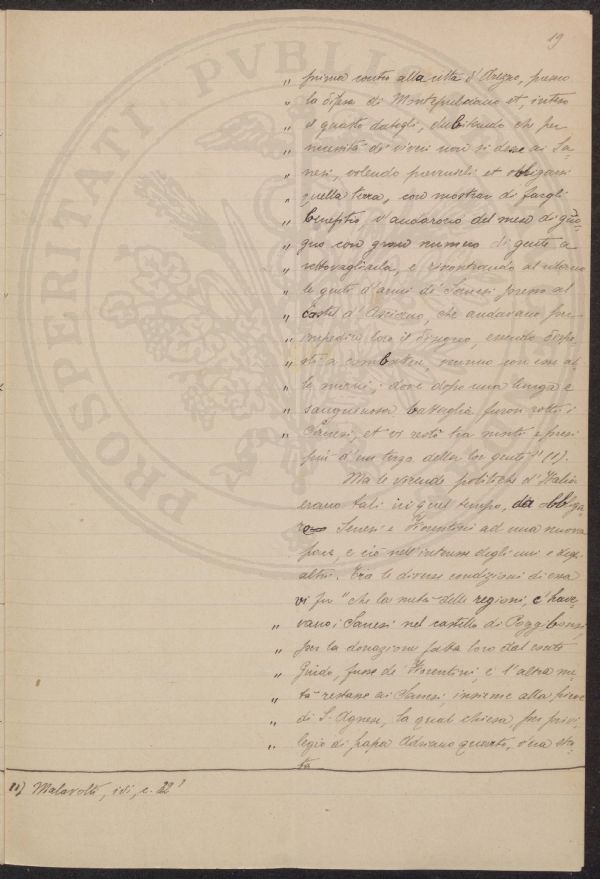 19
PROSPERITATI PVBLICAE
„ prima contro alla città d'Arezzo, preso
„ la difesa di Montepulciano et, inteso
„ il guasto datogli, dubitando che per
„ necessità di viveri non si desse ai Sa-
„ nesi, volendo et obligarsi
„ quella terra, con mostrar di fargli
„ benefitio, v'andarono del mese di giu-
„ gno con gran numero di gente a
„ vettovagliarla, e rincontrando al ritorno
„ le genti d'armi de' Sanesi presso al
„ Castel d'Asciano, che andavano per
„ impedire loro il disegno, essendo dispo-
„ sti a combattere, vennero con essi al-
„ le mani; dove dopo una lunga e
„ sanguinosa battaglia furon rotti i
„ Sanesi, et vi restò tra morti e presi
più d'un terzo della lor gente" (1).
Ma le vicende politiche d'Italia
erano tali in quel tempo, da obbliga-
re Senesi e Fiorentini ad una nuova
pace, e ciò nell'interesse degli uni e degli
altri. Tra le diverse condizioni di essa
vi fu "che la metà delle ragioni, c'have-
„ vano i Sanesi nel castello di Poggibonsi,
„ per la donazione fatta loro dal conte
„ Guido, fusse de' Fiorentini, e l'altra me-
„ tà restasse ai Sanesi, insieme alla pieve
„ di S. Agnesa, la qual chiesa, per privi-
„ legio di papa Adriano quarto, era sta-
ta
(1) Malavolti, ivi, c. 22